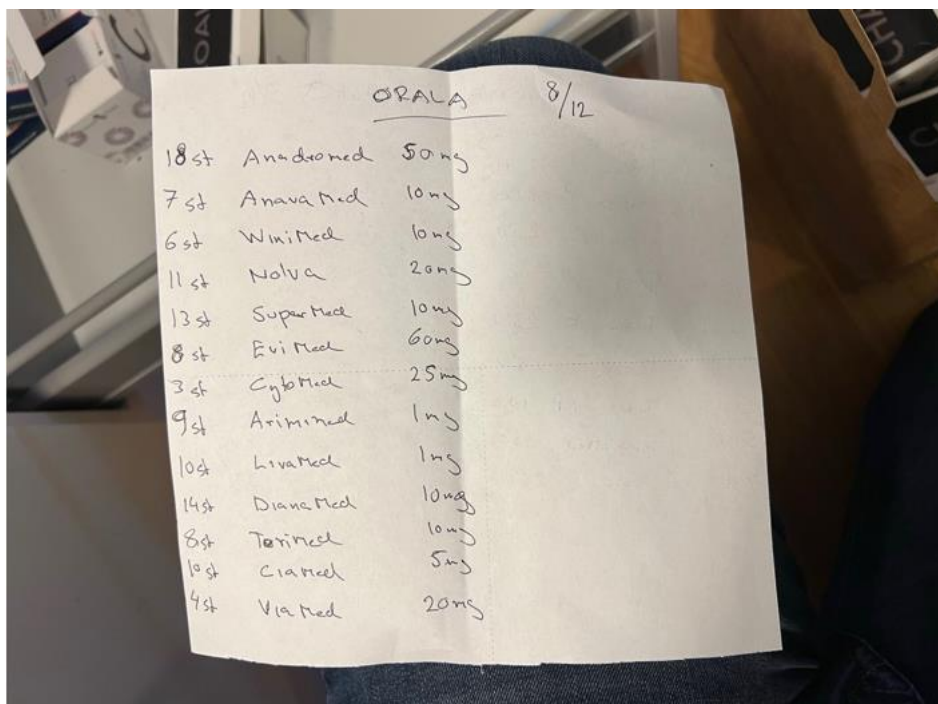 ORALA 8/12
18st Anadromed 50mg
7st AnavaMed 10mg
6st WiniMed 10mg
11st Nolva 20mg
13st SuperMed 10mg
8st EviMed 60mg
3st CytoMed 25mg
9st Arimimed 1mg
10st LivaMed 1mg
14st DianaMed 10mg
8st Torimed 10mg
10st CiaMed 5mg
4st ViaMed 20mg
CHA